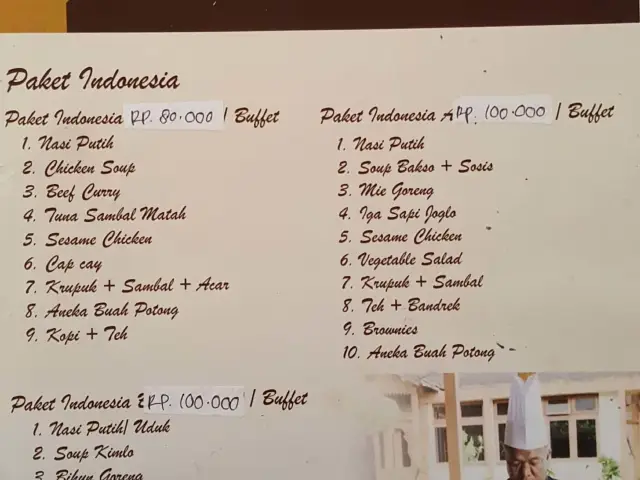 Paket Indonesia
Paket Indonesia RP. 80.000 / Buffet
1. Nasi Putih
2. Chicken Soup
3. Beef Curry
4. Tuna Sambal Matah
5. Sesame Chicken
6. Cap cay
7. Krupuk + Sambal + Acar
8. Aneka Buah Potong
9. Kopi + Teh
Paket Indonesia A RP. 100.000 / Buffet
1. Nasi Putih
2. Soup Bakso + Sosis
3. Mie Goreng
4. Iga Sapi Joglo
5. Sesame Chicken
6. Vegetable Salad
7. Krupuk + Sambal
8. Teh + Bandrek
9. Brownies
10. Aneka Buah Potong
Paket Indonesia RP. 100.000 / Buffet
1. Nasi Putih/ Uduk
2. Soup Kimlo
3. Bihun Goreng